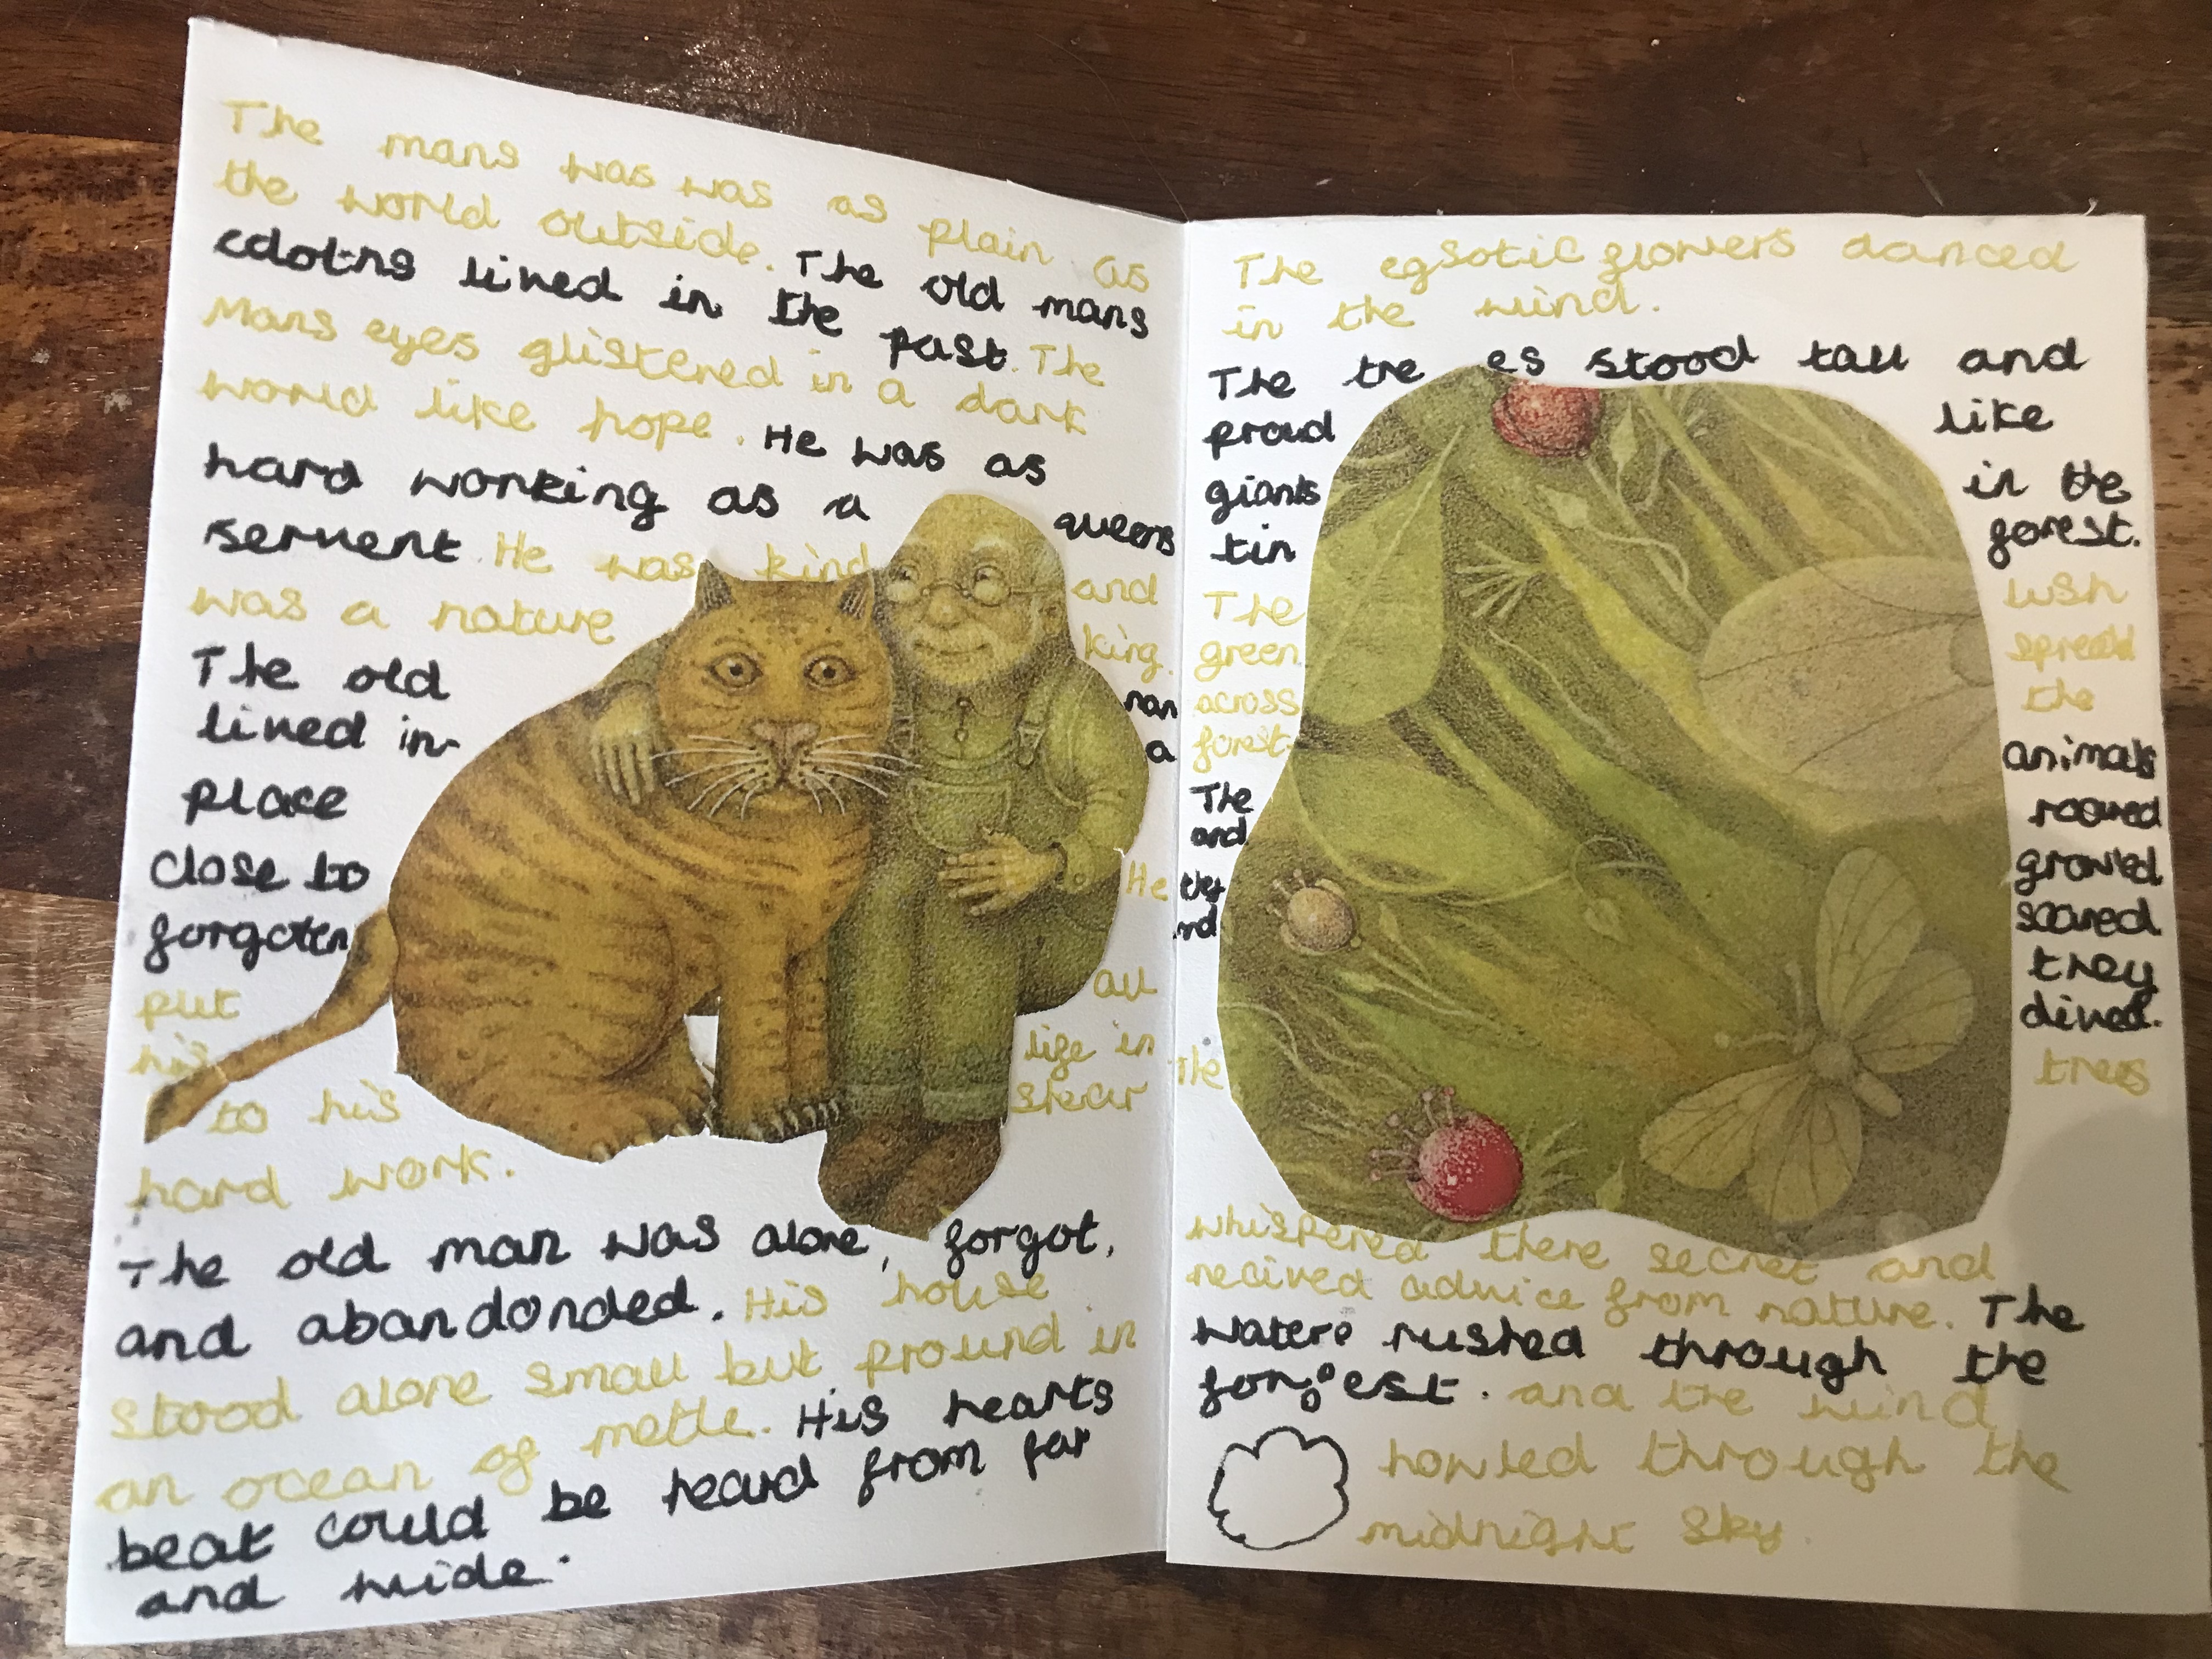 The mans was was as plain as
the world outside. The old mans
cdotns lived in the past. The
Mans eyes glistered in a dark
world like hope. He was as
hard working as a queens
servent. He was kind and
was a nature king.
The old man
lived in a
place
close to He
forgoten
put all
his life in
to his shear
hard work.
The old man was alone, forgot,
and abandonded. His house
stood alone small but pround in
an ocean of metle. His hearts
beat could be heard from far
and wide.
The egsotic flowers danced
in the wind.
The tre es stood tall and
proud like
giants in the
tin forest.
The lush
green spread
across the
forest.
The animals
and roared
growled
scared
they
dived.
The trees
whispered there secret and
recived advice from nature. The
waters rushed through the
forest. and the wind
howled through the
midnight sky.